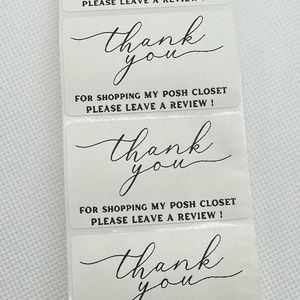 PLEASE LEAVE A REVIEW !
thank
you
FOR SHOPPING MY POSH CLOSET
PLEASE LEAVE A REVIEW !
thank
you
FOR SHOPPING MY POSH CLOSET
PLEASE LEAVE A REVIEW !
thank
you